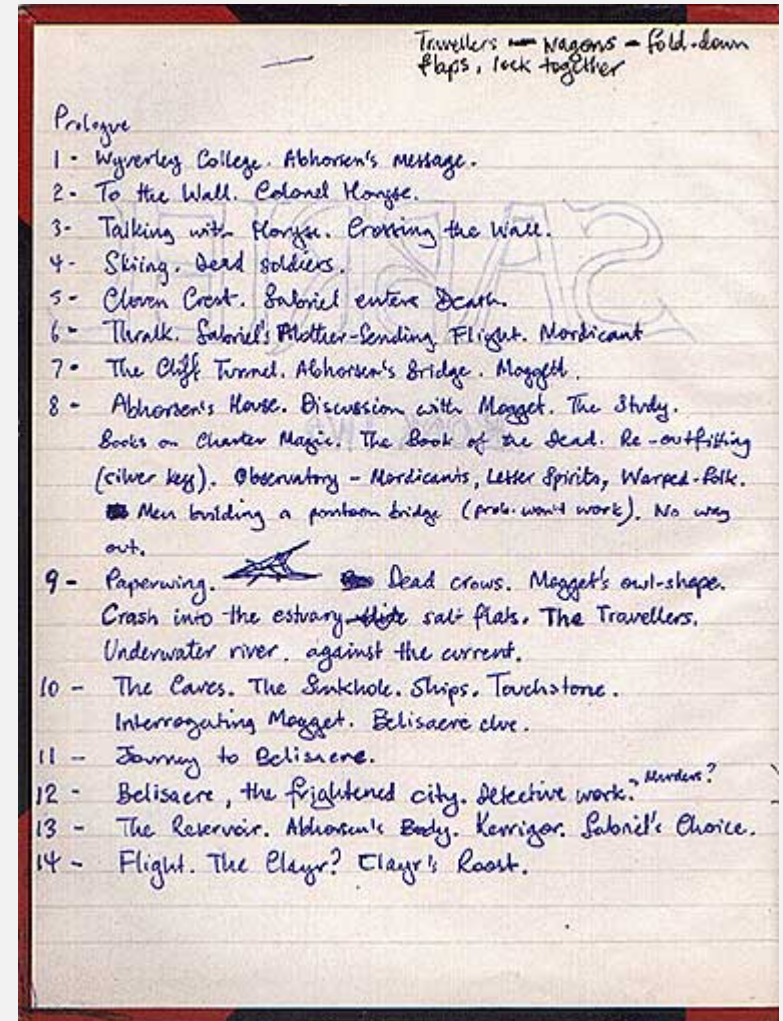 Travellers — Wagons - fold-down
flaps, lock together
Prologue
1 - Wyverley College. Abhorsen's message.
2 - To the Wall. Colonel Horyse.
3 - Talking with Horyse. Crossing the Wall.
4 - Skiing. Dead soldiers.
5 - Cloven Crest. Sabriel enters Death.
6 - Thralk. Sabriel's Mother-Sending Flight. Mordicant
7 - The Cliff Tunnel. Abhorsen's Bridge. Moggett.
8 - Abhorsen's House. Discussion with Mogget. The Study.
Books on Charter Magic. The Book of the Dead. Re-outfitting
(silver key). Observatory - Mordicants, Lesser Spirits, Warped-Folk.
Men building a pontoon bridge (prob. won't work). No way
out.
9 - Paperwing. Dead crows. Mogget's owl-shape.
Crash into the estuary salt flats. The Travellers.
Underwater river. against the current.
10 - The Caves. The Sinkhole. Ships. Touchstone.
Interrogating Mogget. Belisaere clue.
11 - Journey to Belisaere.
12 - Belisaere, the frightened city. Detective work. - Murders?
13 - The Reservoir. Abhorsen's Body. Kerrigor. Sabriel's Choice.
14 - Flight. The Clayr? Clayr's Roost.
SABRIEL
BOOK TWO